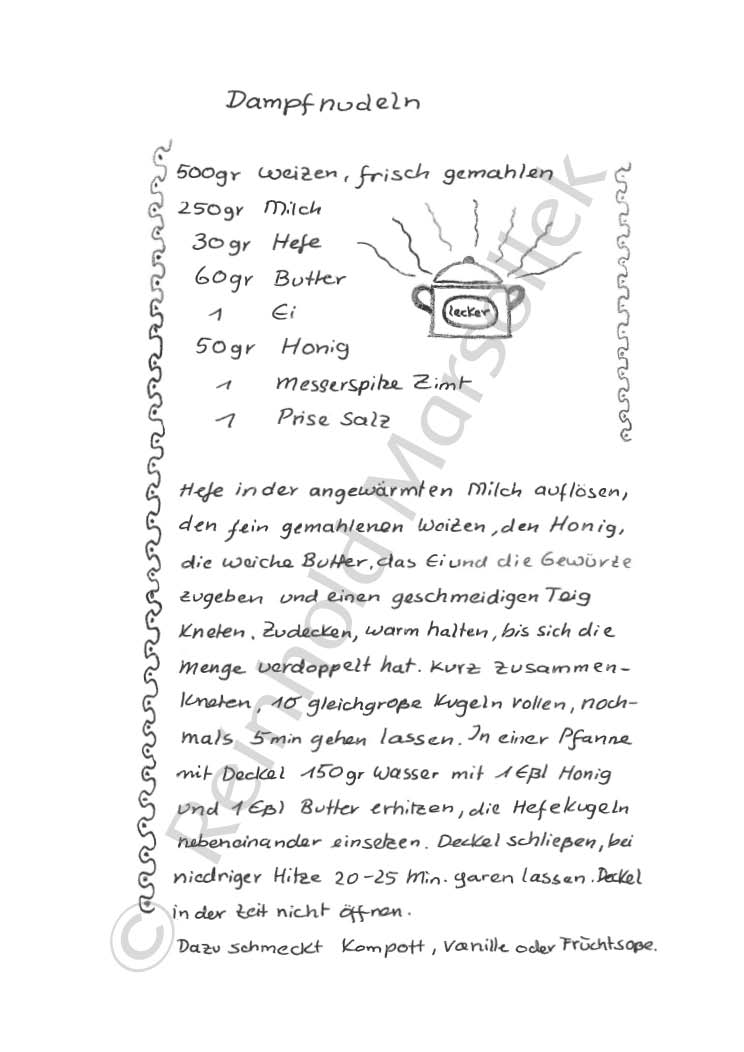 Dampfnudeln
500gr Weizen, frisch gemahlen
250gr Milch
30gr Hefe
60gr Butter
1 Ei
lecker
50gr Honig
1 Messerspitze Zimt
1 Prise Salz
Hefe in der angewärmten Milch auflösen,
den fein gemahlenen Weizen, den Honig,
die weiche Butter, das Ei und die Gewürze
zugeben und einen geschmeidigen Teig
kneten. Zudecken, warm halten, bis sich die
Menge verdoppelt hat. Kurz zusammen-
kneten, 10 gleichgroße Kugeln rollen, noch-
mals 5min gehen lassen. In einer Pfanne
mit Deckel 150gr Wasser mit 1 Eßl Honig
und 1 Eßl Butter erhitzen, die Hefekugeln
nebeneinander einsetzen. Deckel schließen, bei
niedriger Hitze 20-25 Min. garen lassen. Deckel
in der Zeit nicht öffnen.
Dazu schmeckt Kompott, Vanille oder Früchtsoße.
© Reinhold Marsollek